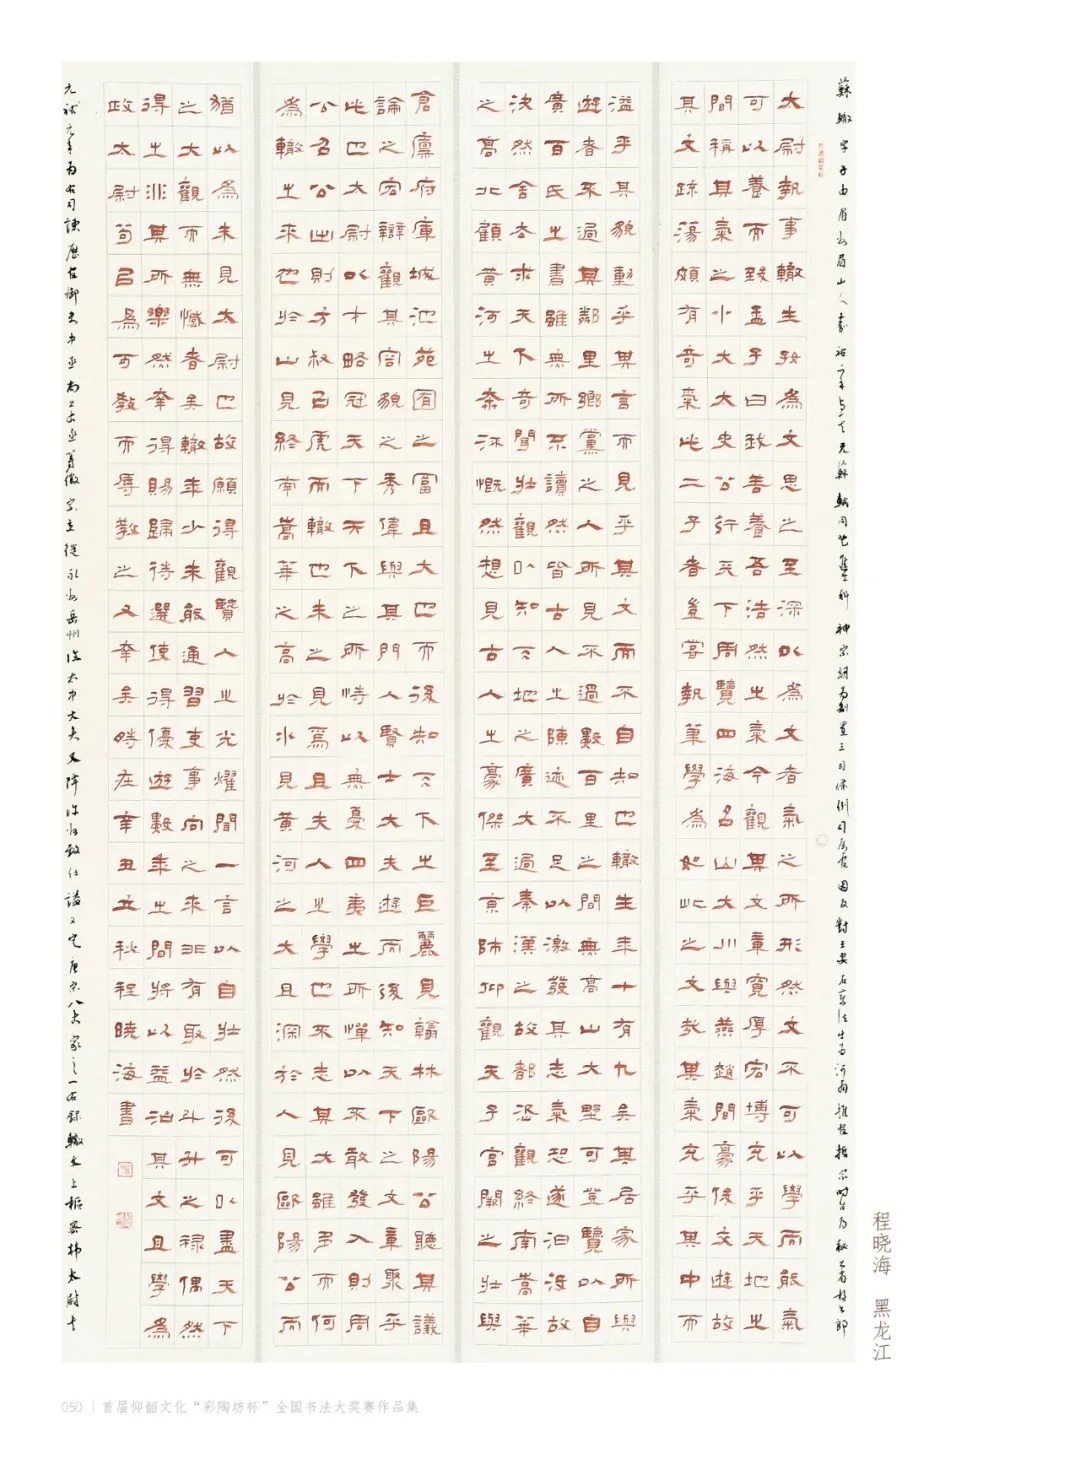 蘇轍字子由眉州眉山人嘉祐二年與其兄蘇軾同登進士科神宗朝為制置三司條例司屬官因反對王安石變法出為河南推官哲宗時召為秘書省校書郎
太尉執事轍生好為文思之至深以為文者氣之所形然文不可以學而能氣
可以養而致孟子曰我善養吾浩然之氣今觀其文章寬厚宏博充乎天地之
間稱其氣之小大太史公行天下周覽四海名山大川與燕趙間豪俊交遊故
其文疏蕩頗有奇氣此二子者豈嘗執筆學為如此之文哉其氣充乎其中而
溢乎其貌動乎其言而見乎其文而不自知也轍生年十有九矣其居家所與
遊者不過其鄰里鄉黨之人所見不過數百里之間無高山大野可登覽以自
廣百氏之書雖無所不讀然皆古人之陳迹不足以激發其志氣恐遂汩沒故
決然舍去求天下奇聞壯觀以知天地之廣大過秦漢之故都恣觀終南嵩華
之高北顧黃河之奔流慨然想見古人之豪傑至京師仰觀天子宮闕之壯與
倉廩府庫城池苑囿之富且大也而後知天下之巨麗見翰林歐陽公聽其議
論之宏辯觀其容貌之秀偉與其門人賢士大夫遊而後知天下之文章聚乎
此也太尉以才略冠天下天下之所恃以無憂四夷之所憚以不敢發入則周
公召公出則方叔召虎而轍也未之見焉且夫人之學也不志其大雖多而何
為轍之來也於山見終南嵩華之高於水見黃河之大且深於人見歐陽公而
猶以為未見太尉也故願得觀賢人之光耀聞一言以自壯然後可以盡天下
之大觀而無憾者矣轍年少未能通習吏事向之來非有取於斗升之祿偶然
得之非其所樂然幸得賜歸待選使得優遊數年之間將以益治其文且學為
政太尉苟以為可教而辱教之又幸矣時在辛丑五秋程曉海書
元祐元年為右司諫歷官御史中丞尚書右丞等徽宗立徙永州岳州後太中大夫又降許州致仕謚文定唐宋八大家之一右錄轍文上樞密韓太尉書
程晓海 黑龙江
050 | 首届仰韶文化“彩陶坊杯”全国书法大奖赛作品集